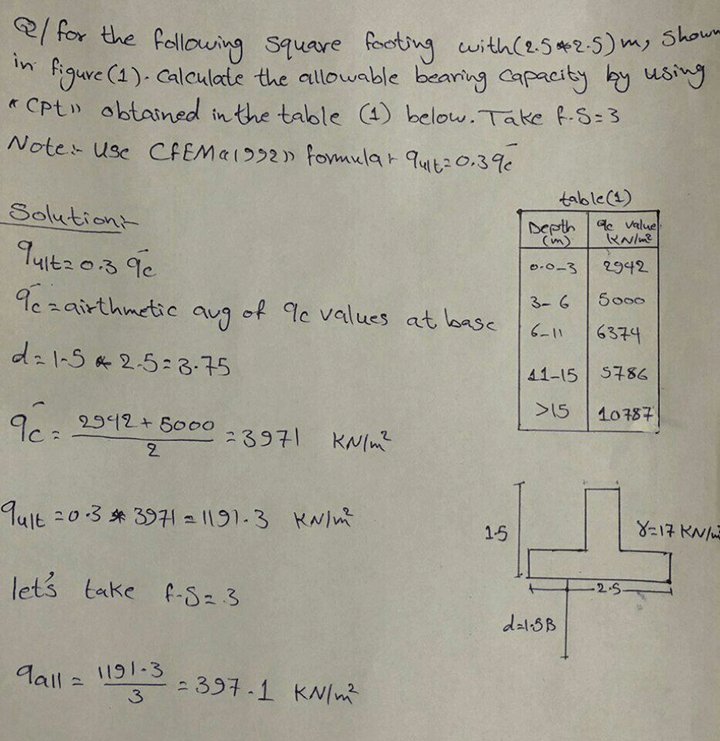 Q/ for the following square footing with (2.5*2.5) m, shown
in figure (1). Calculate the allowable bearing capacity by using
"CPt" obtained in the table (1) below. Take f.S=3
Note:- Use CFEM(1992)) formular qult=0.3q̄c
Solution:-
qult=0.3 q̄c
q̄c=airthmetic avg of qc values at base
d=1.5 * 2.5=3.75
q̄c = (2942+5000)/2 =3971 KN/m²
qult=0.3*3971=1191.3 KN/m²
let's take f.S=3
qall = 1191.3/3 =397.1 KN/m²
table(1)
Depth (m) qc value KN/m²
0.0-3 2942
3-6 5000
6-11 6374
11-15 5786
>15 10787
1.5
γ=17 KN/m
2.5
d=1.5B